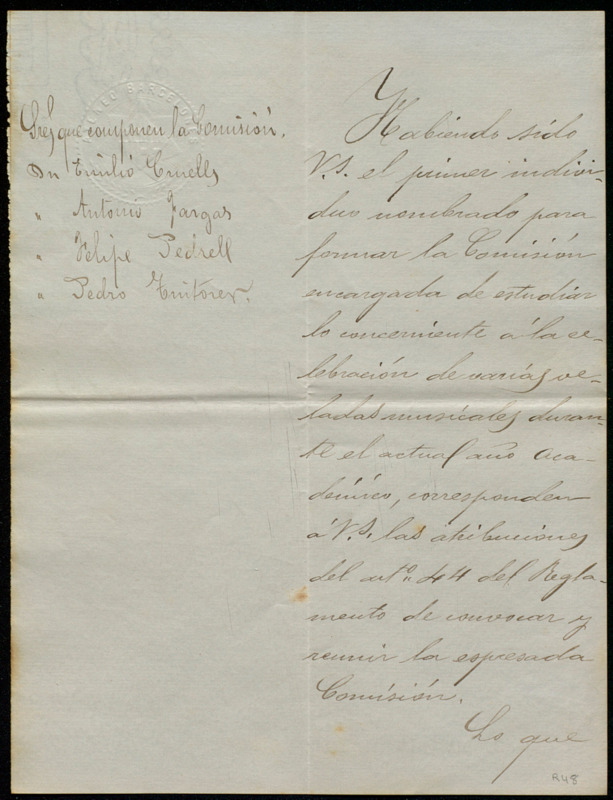 Sres que componen la Comisión.
Dn Emilio Cruells
" Antonio Fargas
" Felipe Pedrell
" Pedro
Habiendo sido
V.S. el primer indivi-
duo nombrado para
formar la Comisión
encargada de estudiar
lo concerniente á la ce-
lebración de varias ve-
ladas musicales duran-
te el actual año aca-
démico, corresponden
á V.S. las atribuciones
del arto. 44 del Regla-
mento de convocar y
reunir la espresada
Comisión.
Lo que
R48